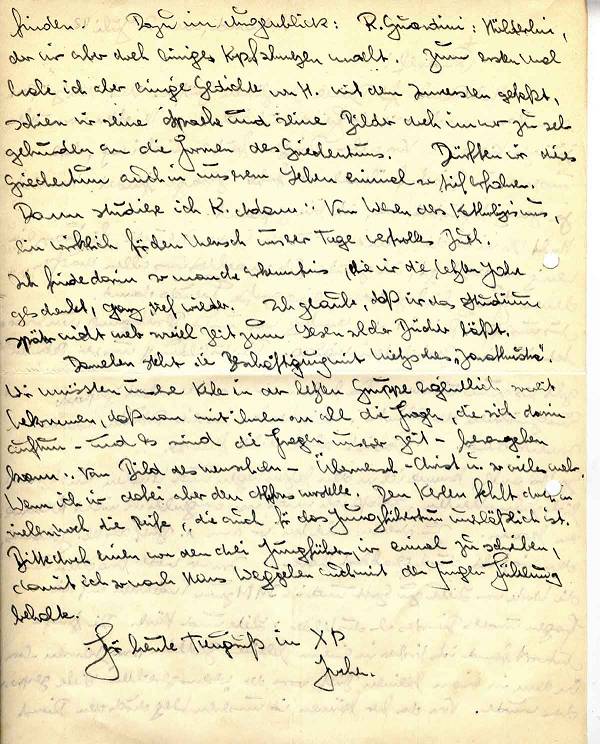 finden. Dazu im Augenblick: R. Guardini: Hölderlin,
der mir aber doch einiges Kopfzerbrechen macht. Zum ersten Mal
habe ich aber einige Gedichte von H. mit dem Innersten gefaßt,
schien mir seine Sprache und seine Bilder doch immer zu sehr
gebunden an die Formen des Griechentums. Dürften wir dies
Griechentum auch in unserem Leben einmal so tief erfahren.
Dann studiere ich K. Adam: "Vom Wesen des Katholizismus",
ein wirklich für den Mensch unserer Tage wertvolles Buch.
Ich finde darin so manche Erkenntnis, die wir die letzten Jahre
gedacht, ganz tief wieder. Ich glaube, daß mir das Studium
später nicht mehr soviel Zeit zum Lesen all der Bücher läßt.
Daneben steht die Beschäftigung mit Nietzsches "Zarathustra".
Wir müssten unsere Kerle in der letzten Gruppe eigentlich soweit
bekommen, daß man mit ihnen an all die Fragen, die sich darin
auftun - und es sind die Fragen unserer Zeit - herangehen
kann: Vom Bild des Menschen - Übermensch - Christ u. so vieles mehr.
Wenn ich mir dabei aber den vorstelle. Den Kerlen fehlt doch in
vielem noch die Reife, die auch für das Jungführertum unerläßlich ist.
Bitte doch einen von den drei Jungführern, mir einmal zu schreiben,
damit ich so nach Hans Weggehen auch mit den Jungen Fühlung
behalte.
Für heute Treugruß in XP